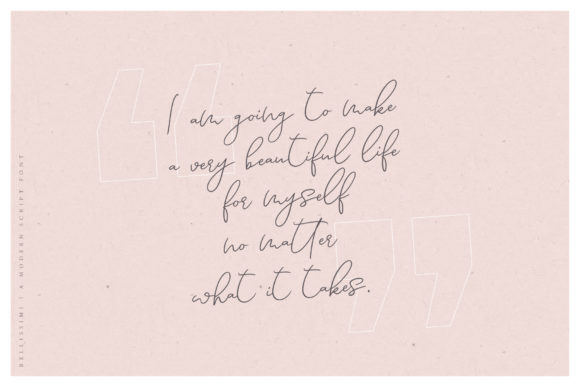 I am going to make
a very beautiful life
for myself
no matter
what it takes.
BELLISSIMI | A MODERN SCRIPT FONT